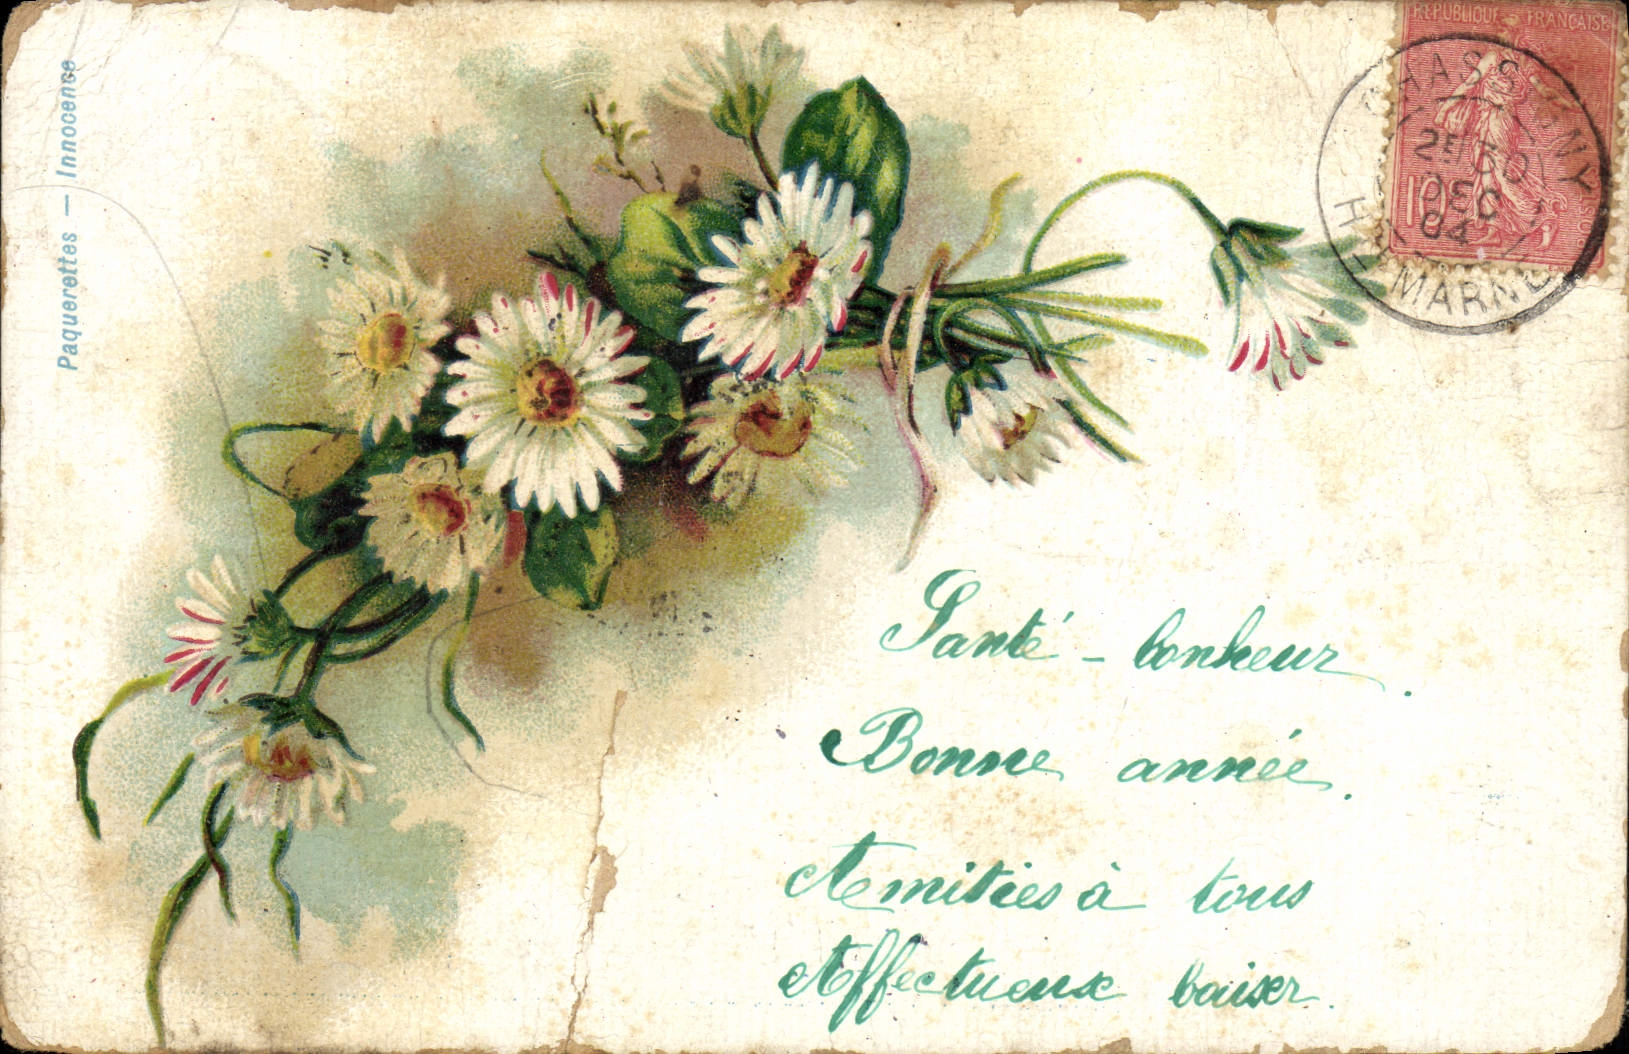 Paquerettes — Innocence
RÉPUBLIQUE FRANÇAISE
10
CHASSIGNY
30
DEC
04
HTE MARNE
Santé - bonheur.
Bonne année.
Amitiés à tous
Affectueux baiser.